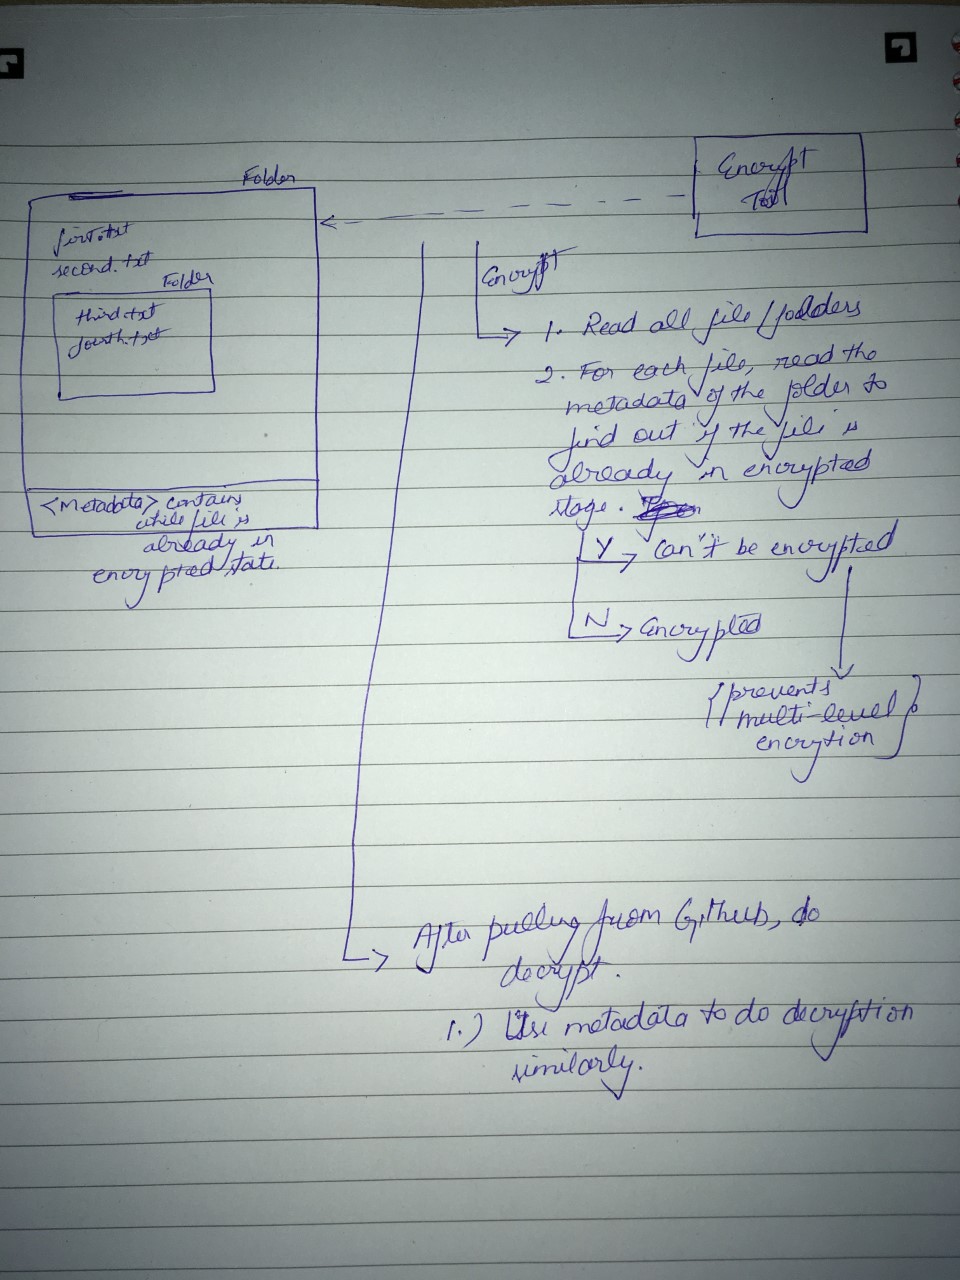 Folder
first.txt
second.txt
Folder
third.txt
fourth.txt
<Metadata> contains
while file is
already in
encrypted state.
Encrypt
Tool
Encrypt
1. Read all file/folders
2. For each file, read the
metadata of the folder to
find out if the file is
already in encrypted
stage.
Y → Can't be encrypted
N → Encrypted
{prevents
multi-level
encrytion}
After pulling from GitHub, do
decrypt.
1.) Use metadata to do decryption
similarly.